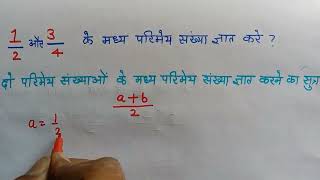 1/2 और 3/4 के मध्य परिमेय संख्या ज्ञात करे ?
दो परिमेय संख्याओं के मध्य परिमेय संख्या ज्ञात करने का सूत्र
a+b/2
a = 1/2